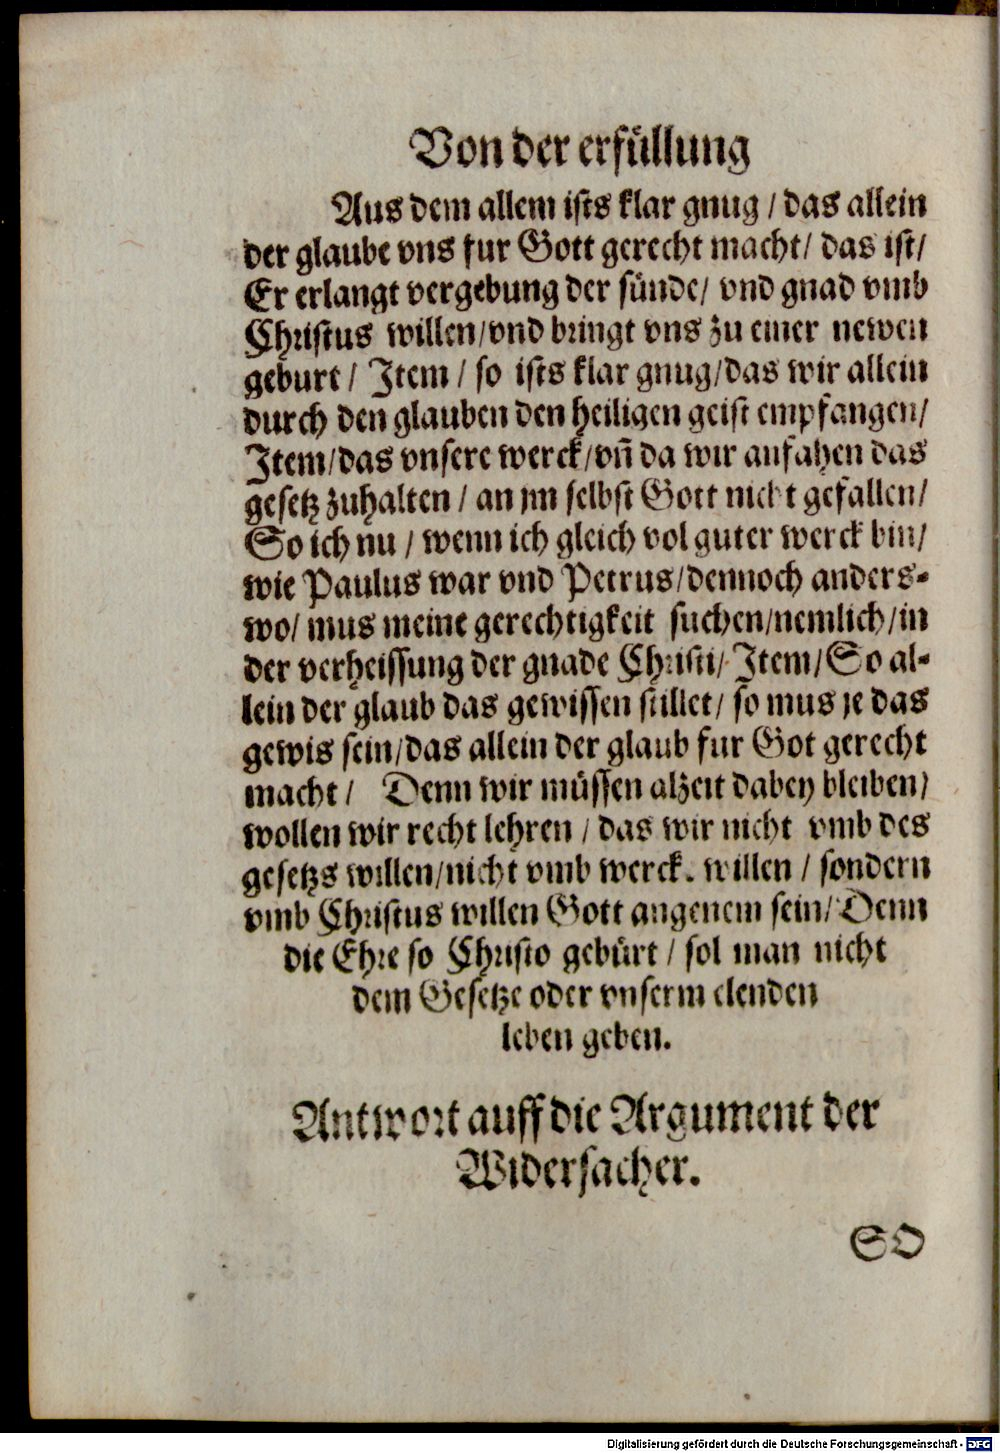 Von der erfüllung
Aus dem allem ists klar gnug / das allein
der glaube vns fur Gott gerecht macht / das ist /
Er erlangt vergebung der sünde / vnd gnad vmb
Christus willen / vnd bringt vns zu einer newen
geburt / Item / so ists klar gnug / das wir allein
durch den glauben den heiligen geist empfangen /
Item / das vnsere werck / vñ da wir anfahen das
gesetz zuhalten / an jm selbst Gott nicht gefallen /
So ich nu / wenn ich gleich vol guter werck bin /
wie Paulus war vnd Petrus / dennoch anders-
wo / mus meine gerechtigkeit suchen / nemlich / in
der verheissung der gnade Christi / Item / So al-
lein der glaub das gewissen stillet / so mus je das
gewis sein / das allein der glaub fur Got gerecht
macht / Denn wir müssen alzeit dabey bleiben /
wollen wir recht lehren / das wir nicht vmb des
gesetzs willen / nicht vmb werck. willen / sondern
vmb Christus willen Gott angenem sein / Denn
die Ehre so Christo gebürt / sol man nicht
dem Gesetze oder vnserm elenden
leben geben.
Antwort auff die Argument der
Widersacher.
SO
Digitalisierung gefördert durch die Deutsche Forschungsgemeinschaft - DFG